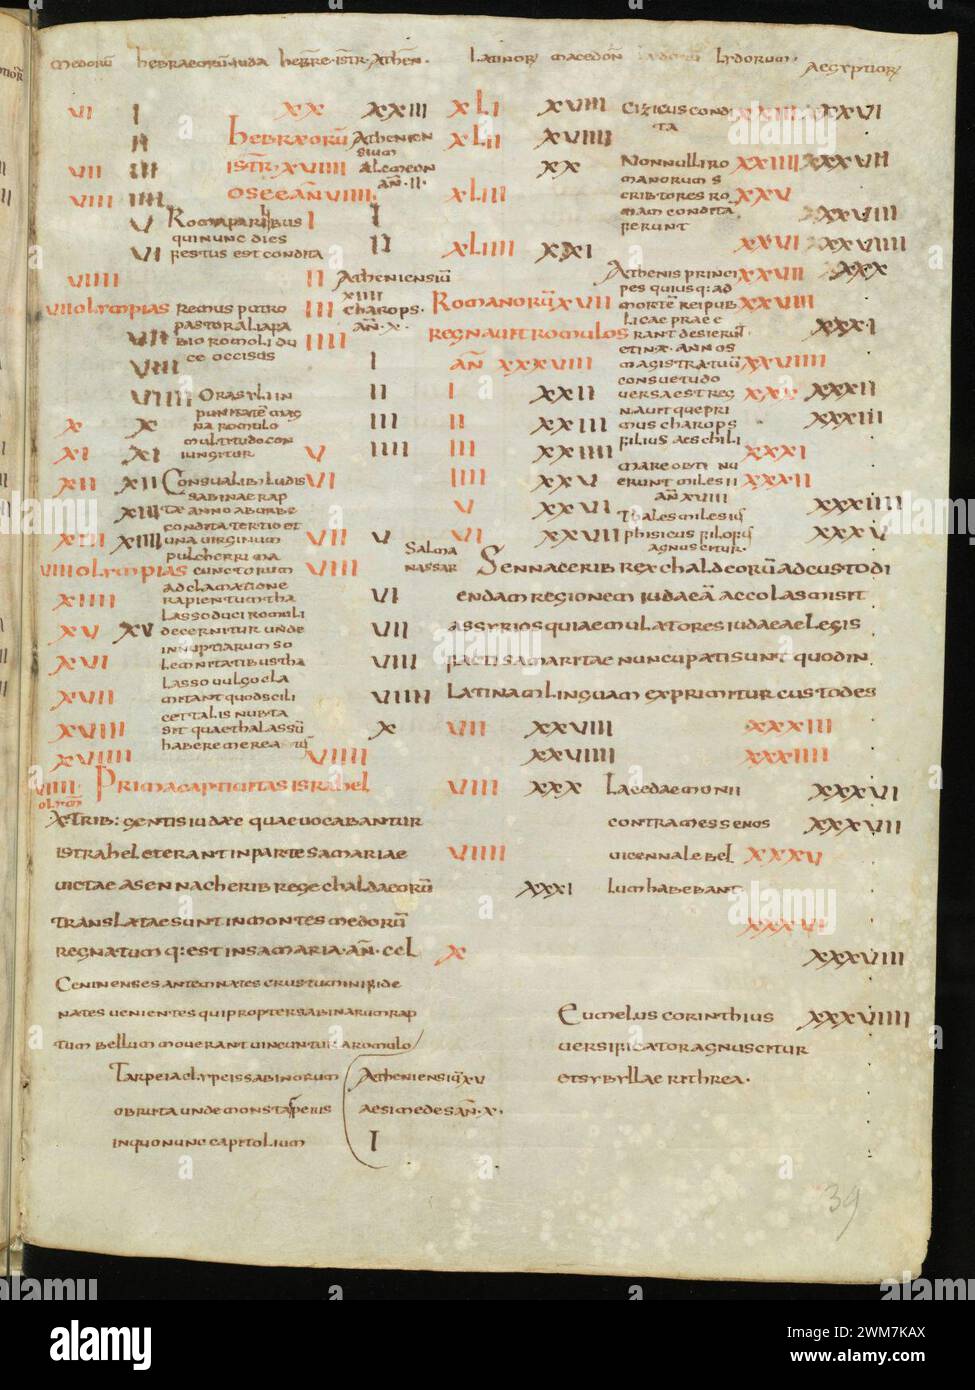 medorū hebraeorū·iuda hebre·istr· Athen· Latinor macedon Lydorum· Aegyptior
VI I XX XXIII XLI XVIII Cizicus condi XXIII XXXVI
II hebraeorū Athenien XLII XVIIII ta
sium
VII III istr XVIIII Alcmeon XX Nonnulli ro XXIIII XXXVII
añ·II· manorum s
VIII IIII osee añ VIIII XLIII cribtores ro XXV
V Roma parilibus I I mam condita XXXVIII
quinunc dies II ferunt
VI festus est condita XLIIII XXI XXVI XXXVIIII
VIIII II Atheniensiū Athenis princi XXVII XXX
XIIII pes quiusq: ad
VII olympias Remus rutro III charops· Romanorū XVII mortē rei pub XXVIII
pastorali a fa añ·X· licae praee XXXI
VII bio romoli du IIII regnauit romulos rant desierūt
ce occisus et in X annos
VIII I añ XXXVIII magistratuū XXVIIII
consuetudo
VIIII Ob asyli in II I XXII uersa est reg XXX XXXII
punitatē mag nauitque pri
X X na romulo III II XXIII mus charops XXXIII
multitudo con filius aeschili
XI XI iungitur V IIII III XXIIII XXXI
mare obti nu
XII XII Consualibi ludis VI IIII XXV erunt milesii XXXII
sabinae rap añ XVIII
XIII tae anno ab urbe V XXVI Thales milesius XXXIIII
condita tertio et
XIII XIIII una uirginum VII V VI XXVII phisicus filosus XXXV
pulcherrima Salma agnuscitur·
VIIII olympias cunctorum VIIII nassar Sennacerib rex chaldeorū ad custodi
adclamatione
XIIII rapientum tha VI endam regionem iudaeā accolas misit
lasso duci romuli
XV XV decernitur unde VII assyrios qui aemulatores iudaeae legis
in nuptiarum so
XVI lemnitatibus tha VIII facti samaritae nuncupati sunt quod in
lasso uulgo cla
XVII mitant quod scili VIIII Latinam linguam exprimitur custodes
cet talis nubta
XVIII sit quae thalassū X VII XXVIII XXXIII
habere merea tur
XVIIII VIIII XXVIIII XXXIIII
VIIII Prima captiuitas israhel VIII XXX Lacedaemonii XXXVI
olym
X trib: gentis iudae quae uocabantur contra messenos XXXVII
istrahel et erant in parte samariae VIIII uicennale bel XXXV
uictae a sennacherib rege chaldaeorū XXXI lum habebant
translatae sunt in montes medorū XXXVI
regnatum q: est in samaria·añ·CCL X XXXVIII
Ceninenses antemnates crustumini fide
nates uenientes qui propter sabinarum rap Eumelus corinthius XXXVIIII
tum bellum mouerant uincuntur a romulo uersificator agnuscitur
Tarpeia clypeis sabinorum Atheniensiū XV et sybylla erithrea·
obruta unde mons tarpeius aesimedes añ·X·
in quo nunc capitolium I
39
alamy
Image ID: 2WM7KAX
www.alamy.com